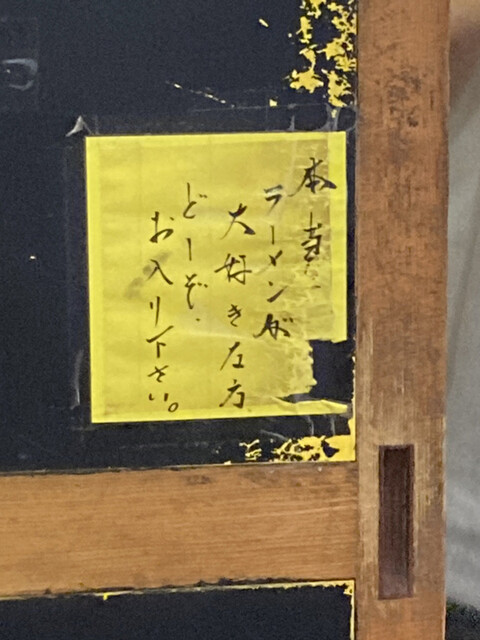 本
ラーメンが
大好きな方
どーぞ.
お入り下さい。